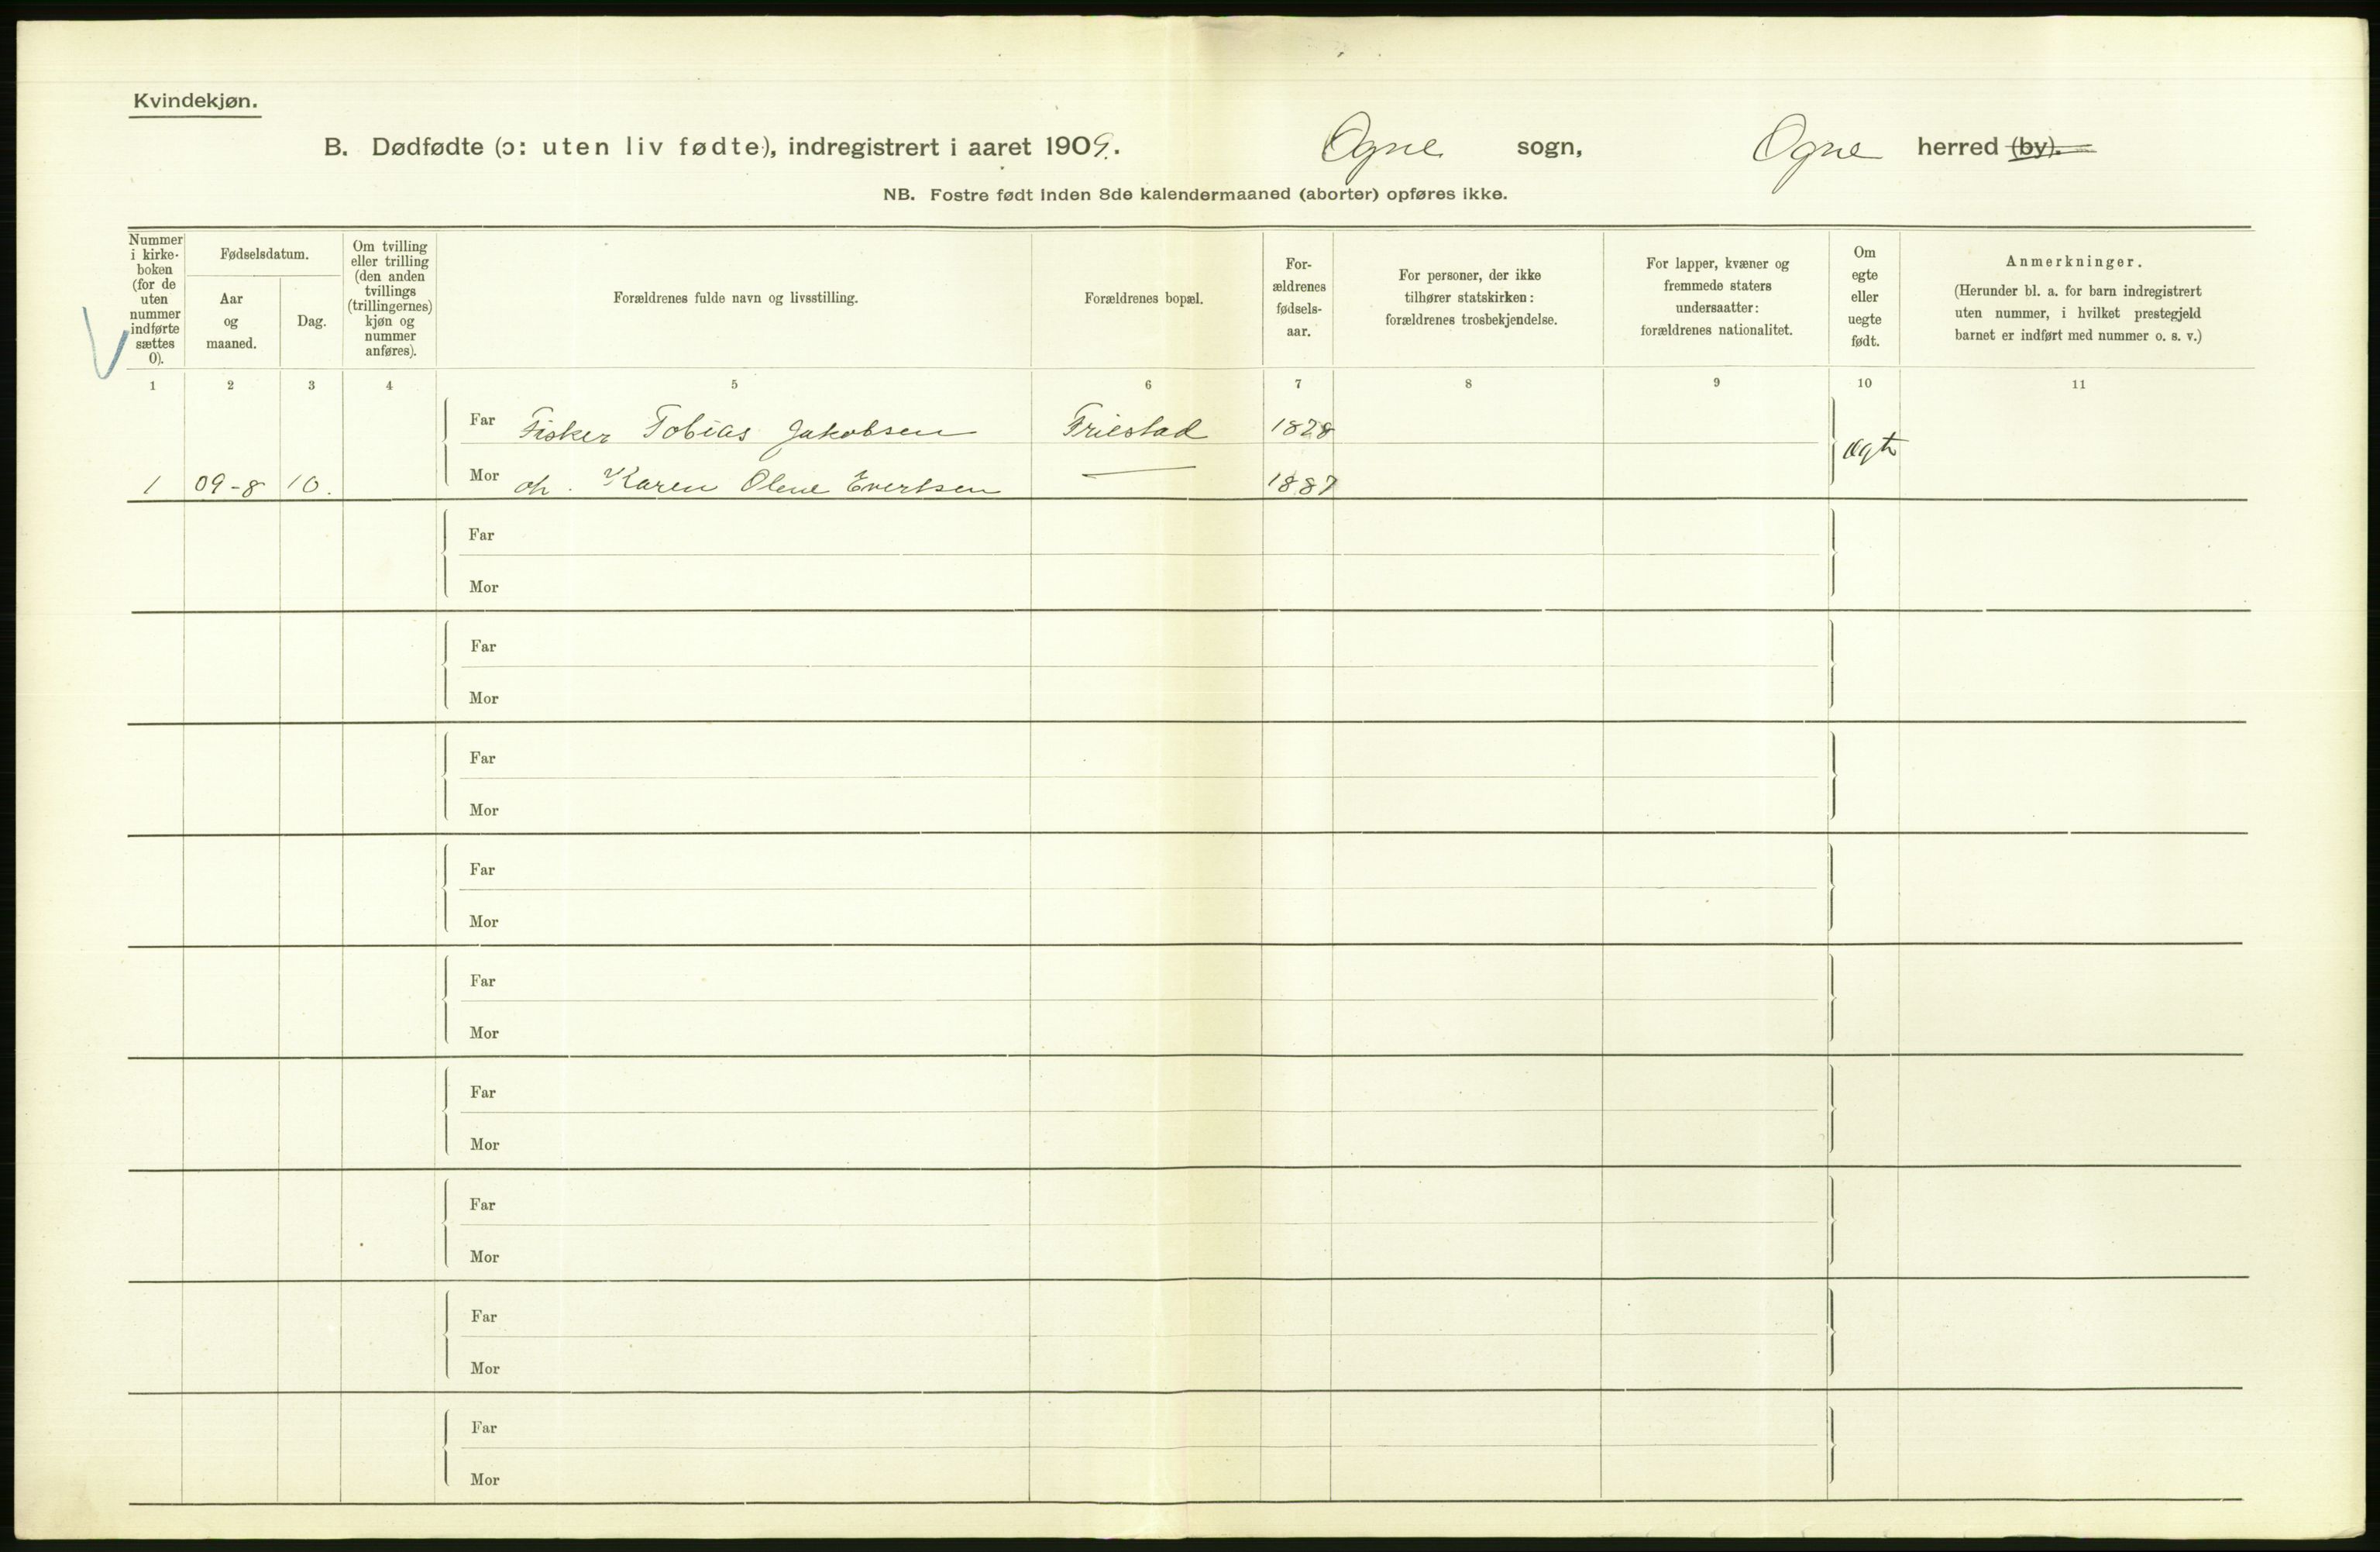 Kvindekjøn.
B. Dødfødte (ɔ: uten liv fødte), indregistrert i aaret 1909. Ogne sogn, Ogne herred (by).
NB. Fostre født inden 8de kalendermaaned (aborter) opføres ikke.
Nummer
i kirke-
boken
(for de
uten
nummer
indførte
sættes
0).
Fødselsdatum.
Aar
og
maaned.
Dag.
Om tvilling
eller trilling
(den anden
tvillings
(trillingernes)
kjøn og
nummer
anføres).
Forældrenes fulde navn og livsstilling.
Forældrenes bopæl.
For-
ældrenes
fødsels-
aar.
For personer, der ikke
tilhører statskirken:
forældrenes trosbekjendelse.
For lapper, kvæner og
fremmede staters
undersaatter:
forældrenes nationalitet.
Om
egte
eller
uegte
født.
Anmerkninger.
(Herunder bl. a. for barn indregistrert
uten nummer, i hvilket prestegjeld
barnet er indført med nummer o. s. v.)
1 2 3 4 5 6 7 8 9 10 11
Far Fisker Tobias Jakobsen Friestad 1878
ægte
1 09-8 10. Mor Karen Olene Evertsen — 1887
Far
Mor
Far
Mor
Far
Mor
Far
Mor
Far
Mor
Far
Mor
Far
Mor
Far
Mor
Far
Mor